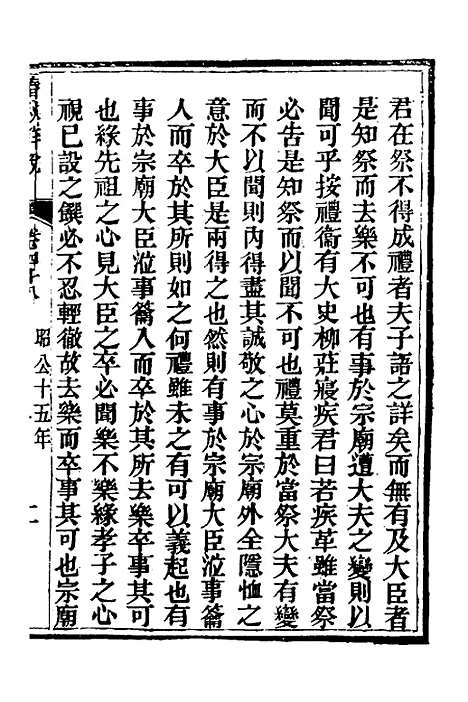 君在祭不得成禮者夫子語之詳矣而無有及大臣者
是知祭而去樂不可也有事於宗廟遭大夫之變則以
聞可乎按禮衞有大史柳莊寢疾君曰若疾革雖當祭
必吿是知祭而以聞不可也禮莫重於當祭大夫有變
而不以聞則內得盡其誠敬之心於宗廟外全隱恤之
意於大臣是兩得之也然則有事於宗廟大臣涖事籥
人而卒於其所則如之何禮雖未之有可以義起也有
事於宗廟大臣涖事籥人而卒於其所去樂卒事其可
也緣先祖之心見大臣之卒必聞樂不樂緣孝子之心
視已設之饌必不忍輕徹故去樂而卒事其可也宗廟
昭公十五年
二